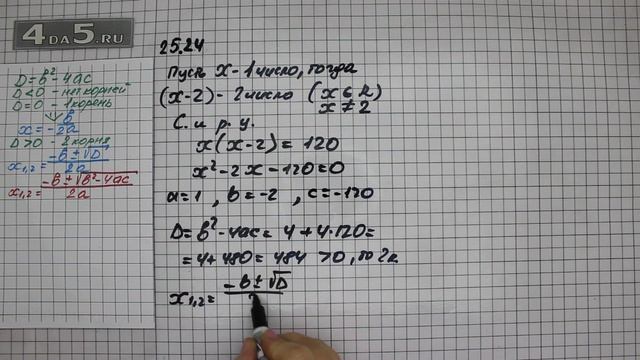 4DA5.RU
D=b²-4ac
D<0 - нет корней
D=0 - 1 корень
x=-b/2a
D>0 - 2 корня
x₁,₂=(-b±√D)/2a
x₁,₂=(-b±√b²-4ac)/2a
25.24
Пусть x-1 число, тогда
(x-2)-2 число (x∈R)
x≠2
С. и р. у.
x(x-2)=120
x²-2x-120=0
a=1, b=-2, c=-120
D=b²-4ac=4+4·120=
=4+480=484 >0, то 2к.
x₁,₂=(-b±√D)/2